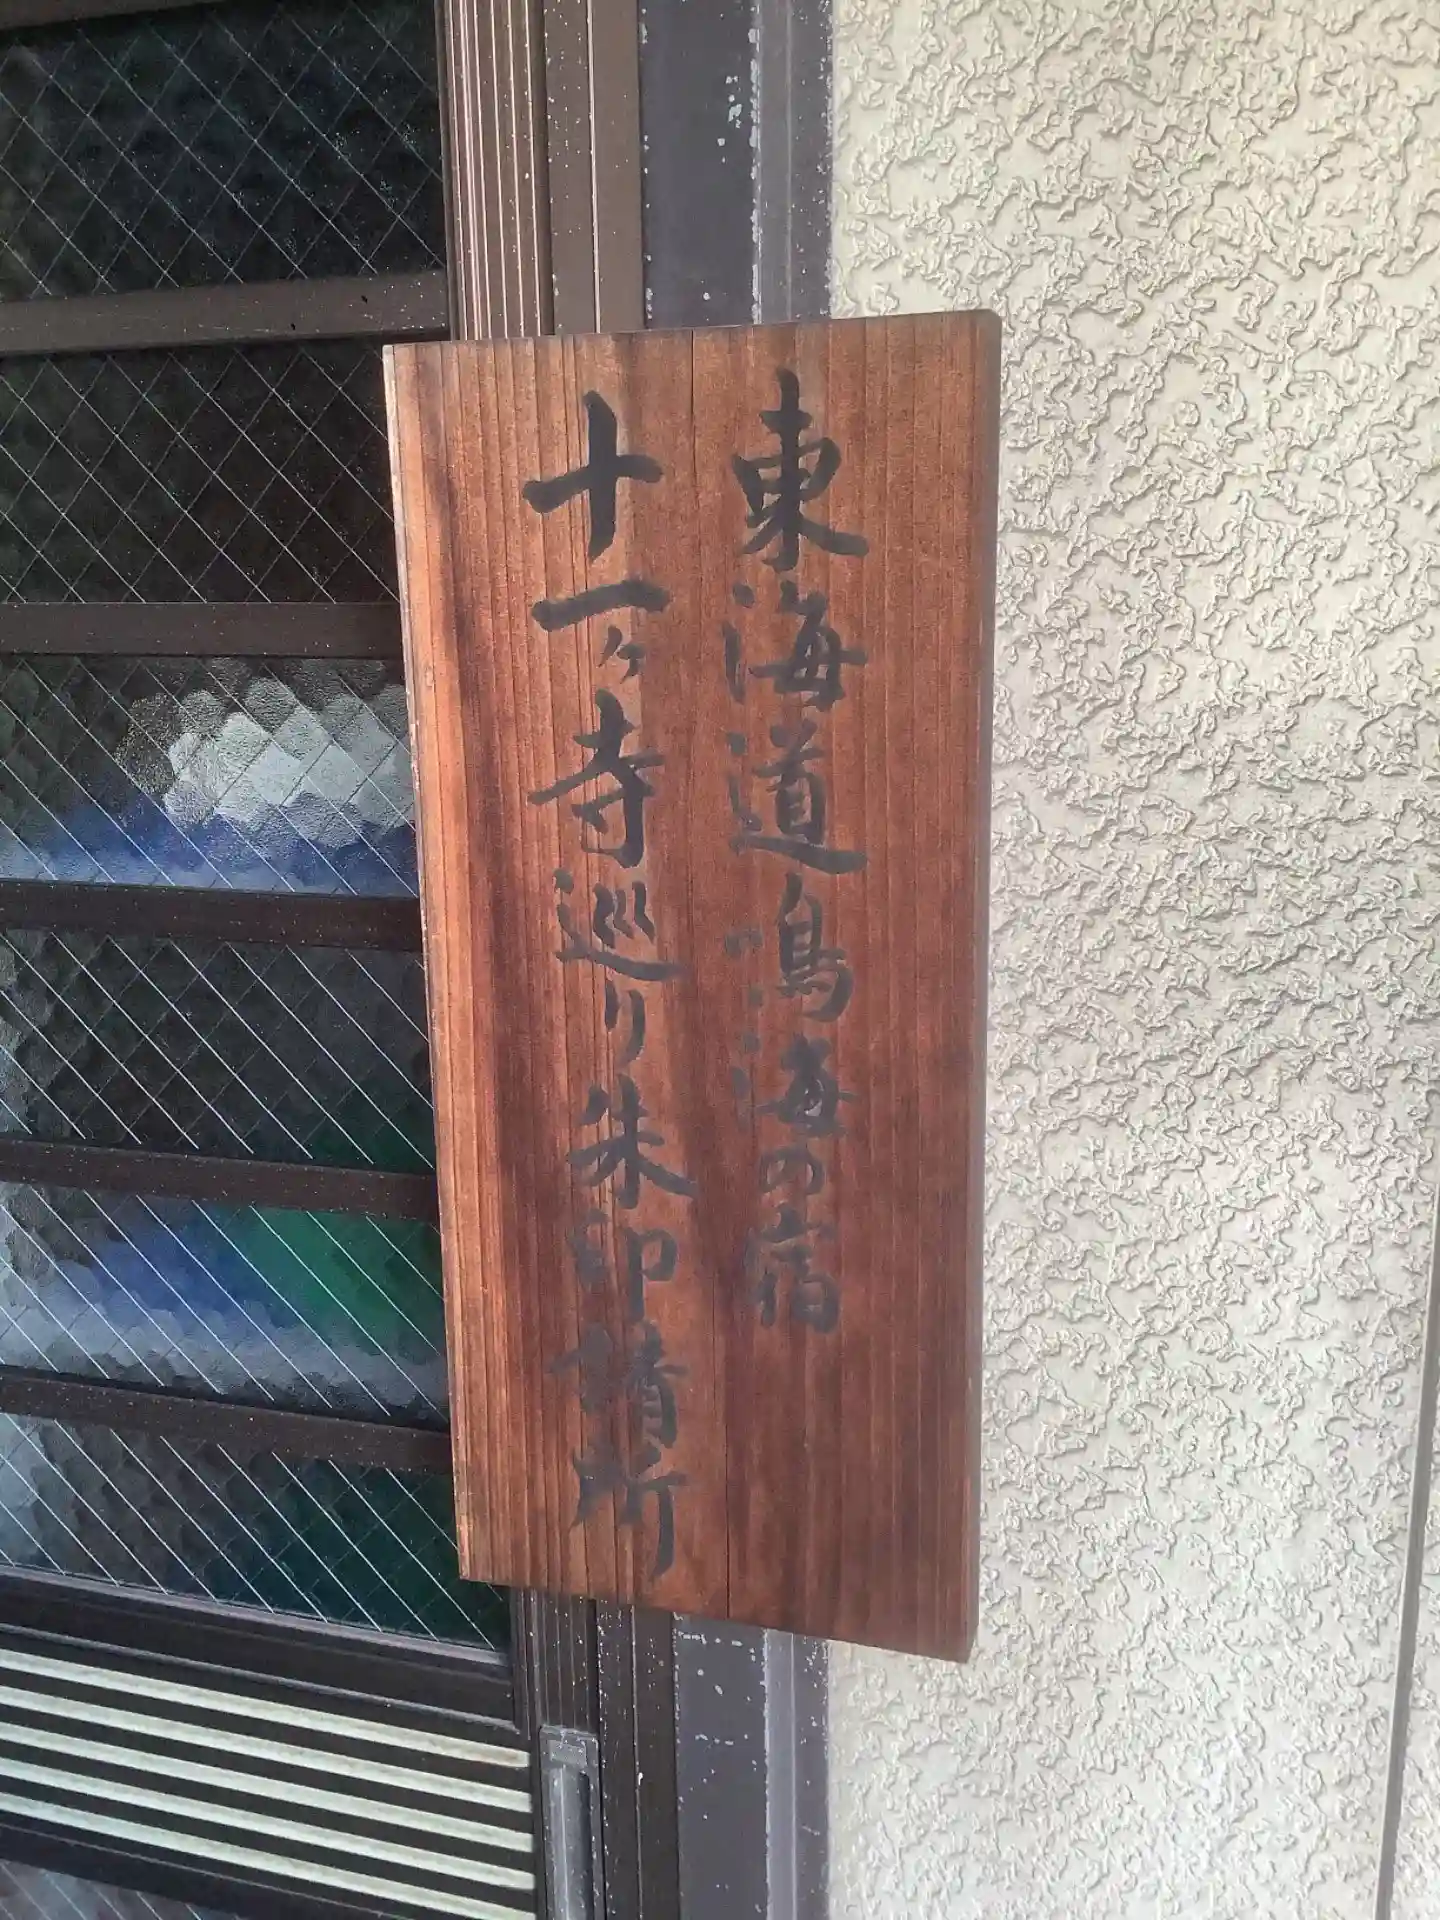 東海道鳴海の宿
十一ヶ寺巡り朱印情所